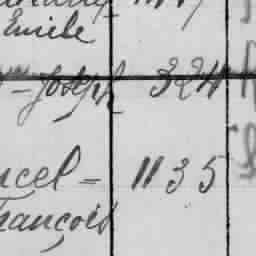 Emile
- Joseph 324
ncel - 1135
François